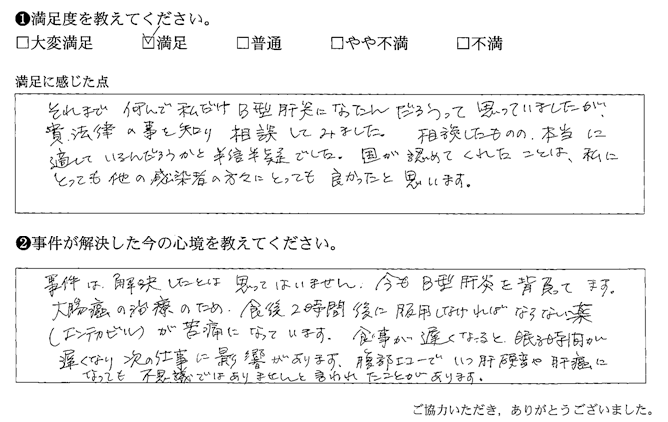 ❶満足度を教えてください。
□大変満足 ☑満足 □普通 □やや不満 □不満
満足に感じた点
それまで 何んで私だけ B型肝炎になったんだろうって 思っていましたが、
法律の事を知り 相談してみました。 相談したものの、本当に
適しているんだろうかと半信半疑でした。国が認めてくれたことは、私に
とっても他の感染者の方々にとっても 良かったと思います。
❷事件が解決した今の心境を教えてください。
事件は、解決したとは 思ってはいません。今もB型肝炎を背負ってます。
大腸癌の治療のため、食後2時間後に服用しなければならない薬
(エンテカビル)が苦痛になっています。食事が遅くなると、眠る時間が
遅くなり次の仕事に影響があります。腹部エコーでいつ肝硬変や肝癌に
なっても不思議ではありませんと言われたことがあります。
ご協力いただき，ありがとうございました。